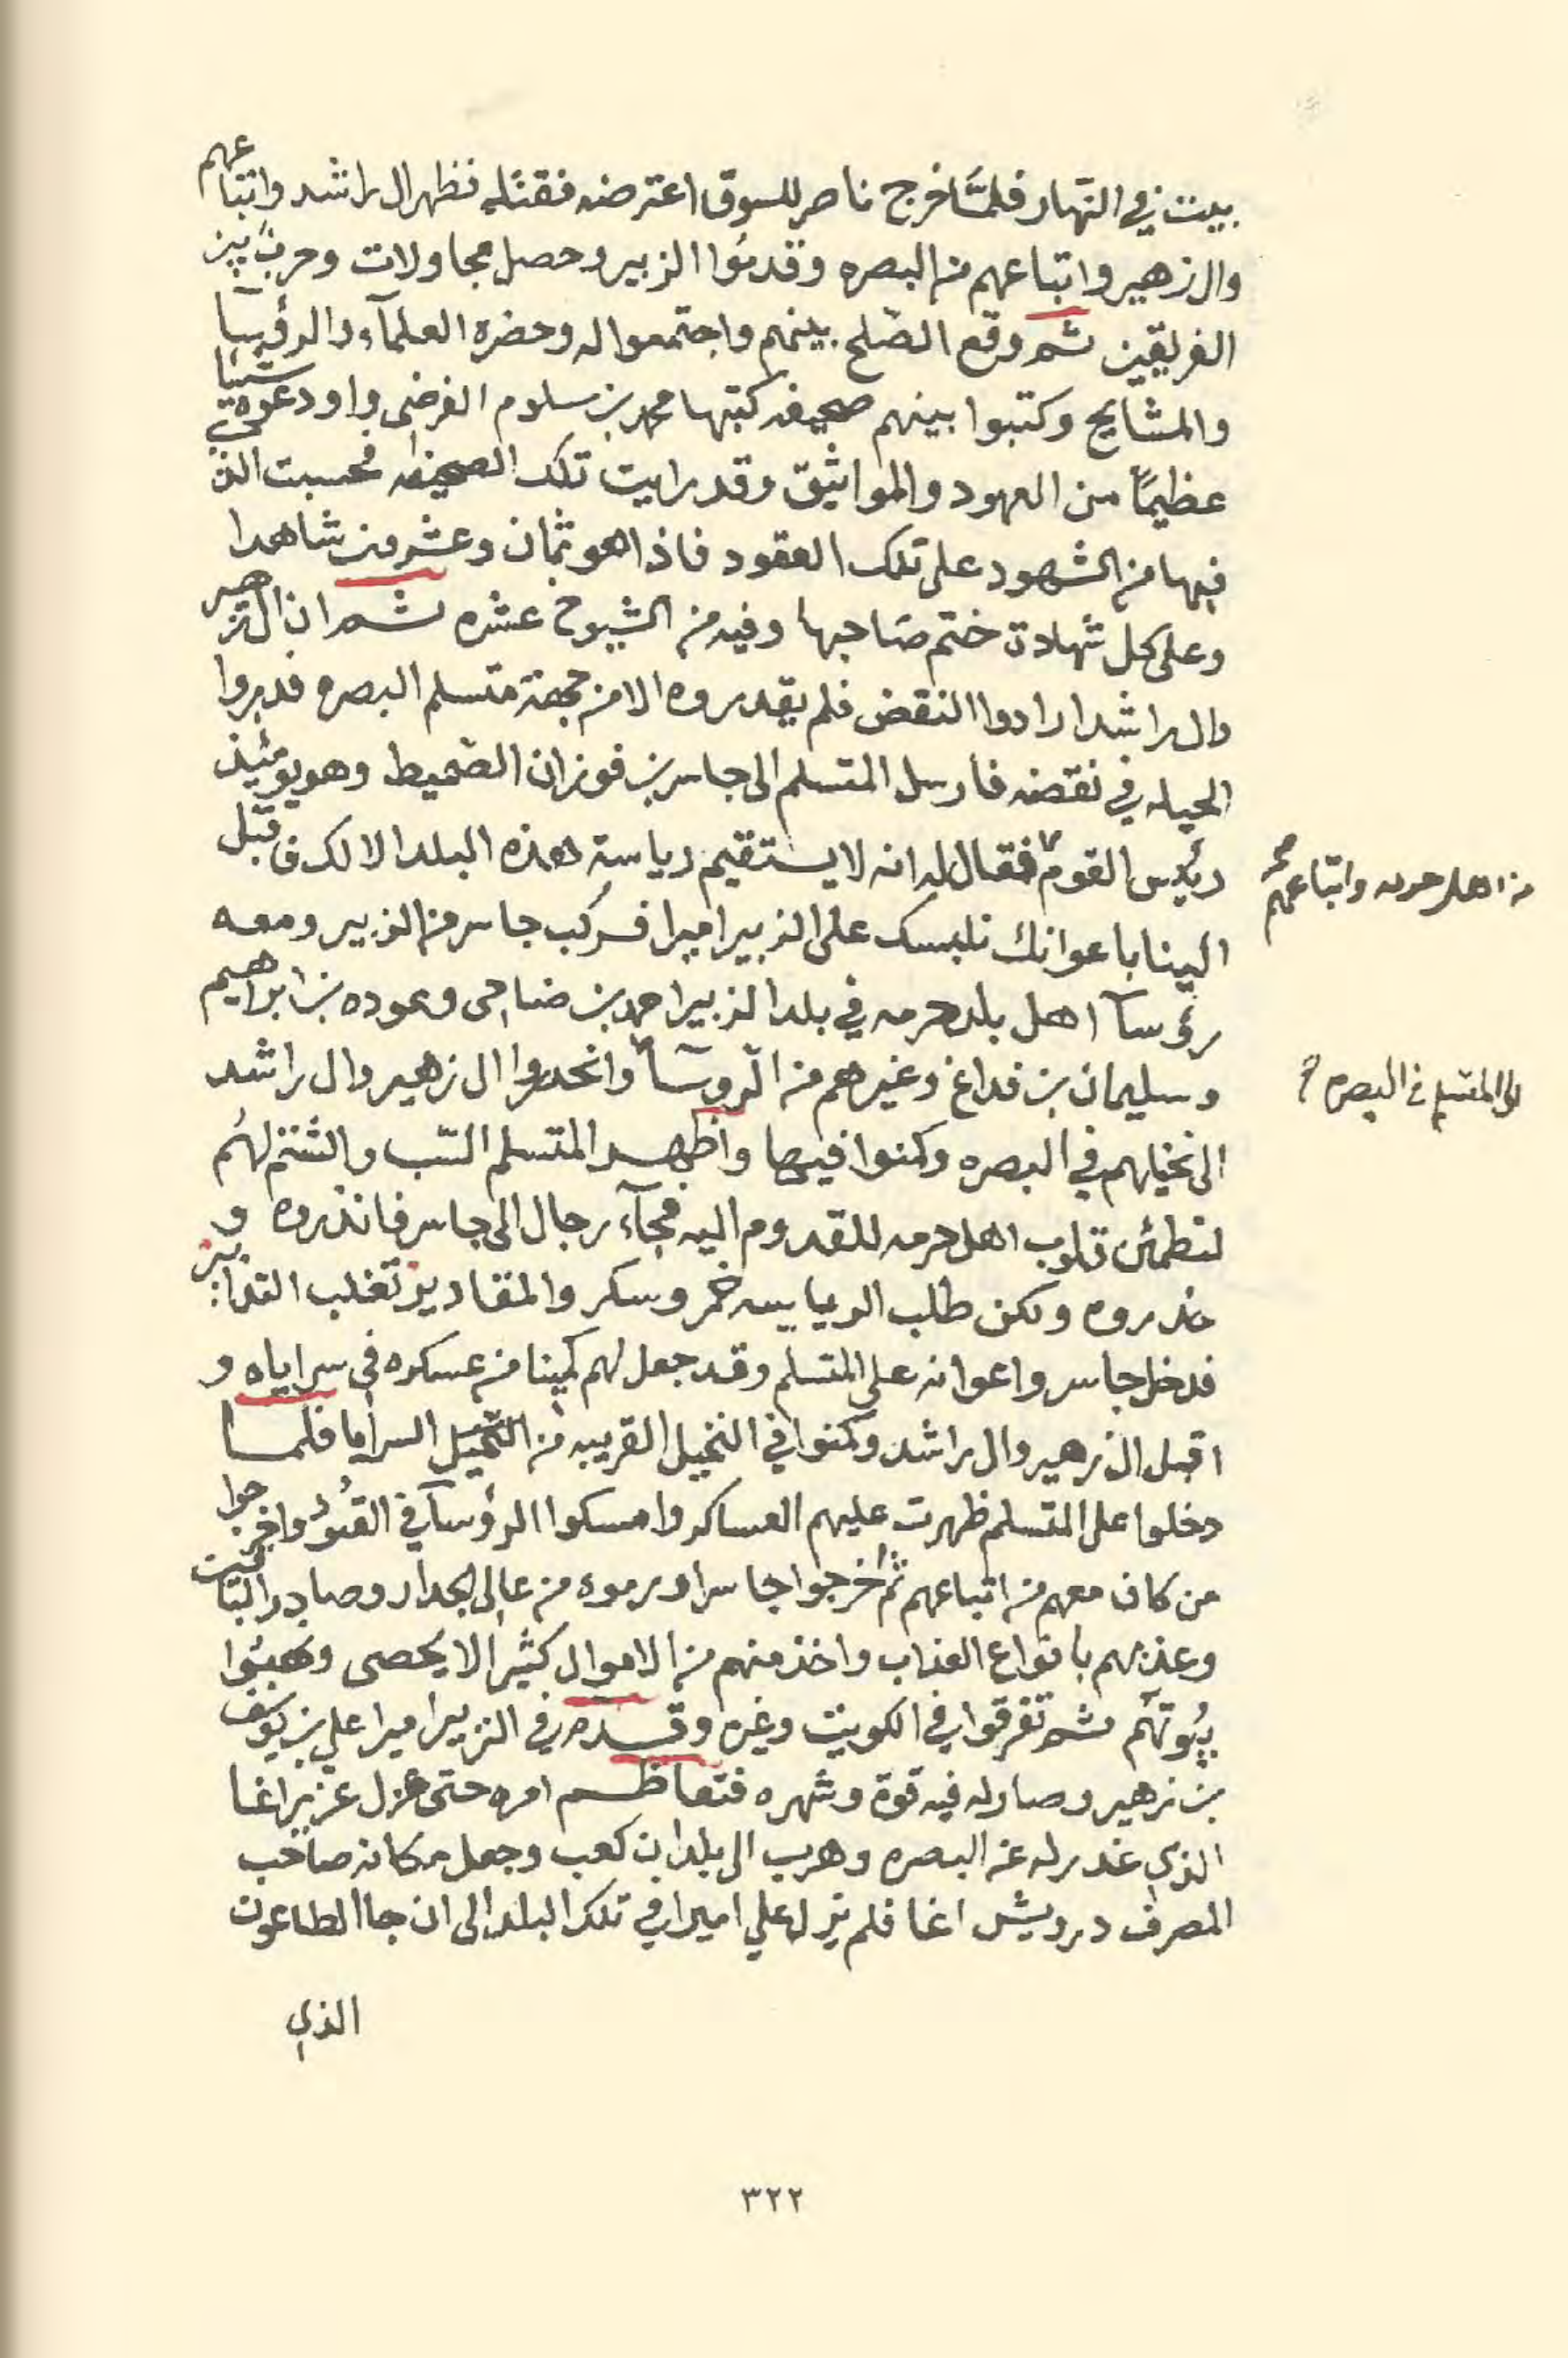 بيت في النهار فلمَّا خرج ناصر للسوق اعترضه فقتله فظهر ال راشد واتباعهم
وال زهير واتباعهم من البصره وقدموا الزبير وحصل مجاولات وحربٌ بين
الفريقين ثم وقع الصّلح بينهم واجتمعوا له وحضره العلمآء والرؤسآ
والمشايخ وكتبوا بينهم صحيفه كتبها محمد بن سلوم الفرضي واودعوه شيئا
عظيمًا من العهود والمواثيق وقد رايت تلك الصحيفه فحسبت الذي
فيها من الشهود على تلك العقود فاذا هو ثمان وعشرين شاهدا
وعلى كل شهادة ختم صاحبها وفيه من الشيوخ عشره ثم ان ال زهير
وال راشد ارادوا النقض فلم يقدروه الا من جهة متسلم البصره فدبروا
الحيله في نقضه فارسل المتسلم الى جاسر بن فوزان الصّميط وهو يومئيذ
رئيس القوم فقال له انه لا يستقيم رياسة هذه البلد الا لك فاقبل
من اهل حرمه واتباعهم صح
الينا باعوانك نلبسك على الزبير اميرا فركب جاسر من الزبير ومعه
رؤسآ اهل بلد حرمه في بلد الزبير احمد بن ضاحي وعوده بن ابراهيم
وسليمان بن فداغ وغيرهم من الروسآ وانحدروا ال زهير وال راشد
الى المتسلم في البصره
الى نخيلهم في البصره وكمنوا فيها واظهر المتسلم السّب والشتم لهُم
لتطمئن قلوب اهل حرمه للقدوم اليه فجآء رجال الى جاسر فانذروه و
حذروه ولكن طلب الرياسه خمر وسكر والمقادير تغلب التدابير
فدخل جاسر واعوانه على المتسلم وقد جعل لهم كمينا من عسكره في سراياه و
اقبل ال زهير وال راشد وكمنوا في النخيل القريبه من السرايا فلما
دخلوا على المتسلم ظهرت عليهم العساكر وامسكوا الرؤسآ في واخرجوا
من كان معهم من اتباعهم ثم اخرجوا جاسرا ورموه من عالى الجدار وصادر
وعذبهم بانواع العذاب واخذ منهم من الاموال كثيرا لا يحصى ونهبُوا
بيُوتهُم ثم تفرقوا في الكويت وغيره وقد في الزبير اميرا علي بن يوسف
بن زهير وصار له فيه قوة وشهره فتعاظم امره حتى عزل عزير اغا
الذي غدر له عن البصره وهرب الى بلد ابن كعب وجعل مكانه صاحب
المصرف درويش اغا فلم يزل علي اميرا في تلك البلد الى ان جا الطاعون
الذي
٣٢٢